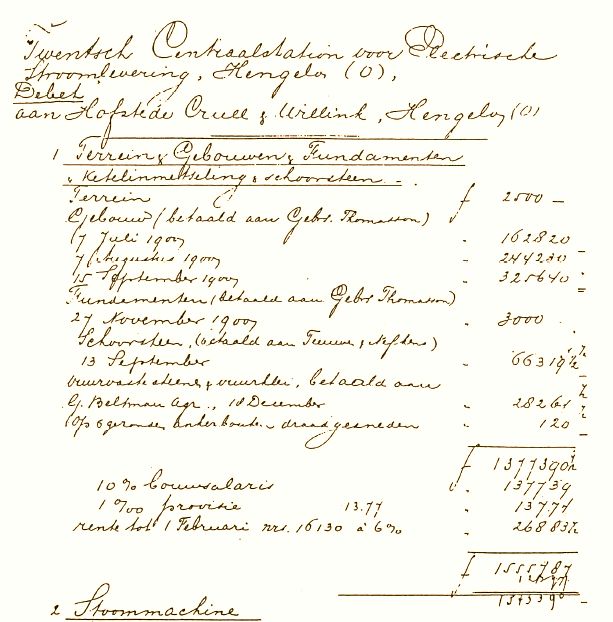 Twentsch Centraalstation voor Electrische
Stroomlevering, Hengelo (O),
Debet
aan Hofstede Crull & Willink, Hengelo (O)
1 Terrein & Gebouwen & Fundamenten
& Ketelinmetseling & schoorsteen.
Terrein f 2500 —
Gebouw (betaald aan Gebr. Thomasson)
7 Juli 1900 " 162820
7 Augustus 1900 " 244230
15 September 1900 " 325640
Fundamenten (betaald aan Gebr Thomasson)
27 November 1900 " 3000
Schoorsteen, (betaald aan
13 September " 66319½
vuurvaste steenen & vuurklei, betaald aan
G. Beltman Agr., 18 December " 28261
(op 6 geronde ankerbouten draad gesneden " 120
f 1377390½
10% bouwsalaris " 137739
1‰ provisie 13.77 " 1377
rente tot 1 Februari nrs. 16130 à 6% " 26883½
f 1555787
2 Stoommachine